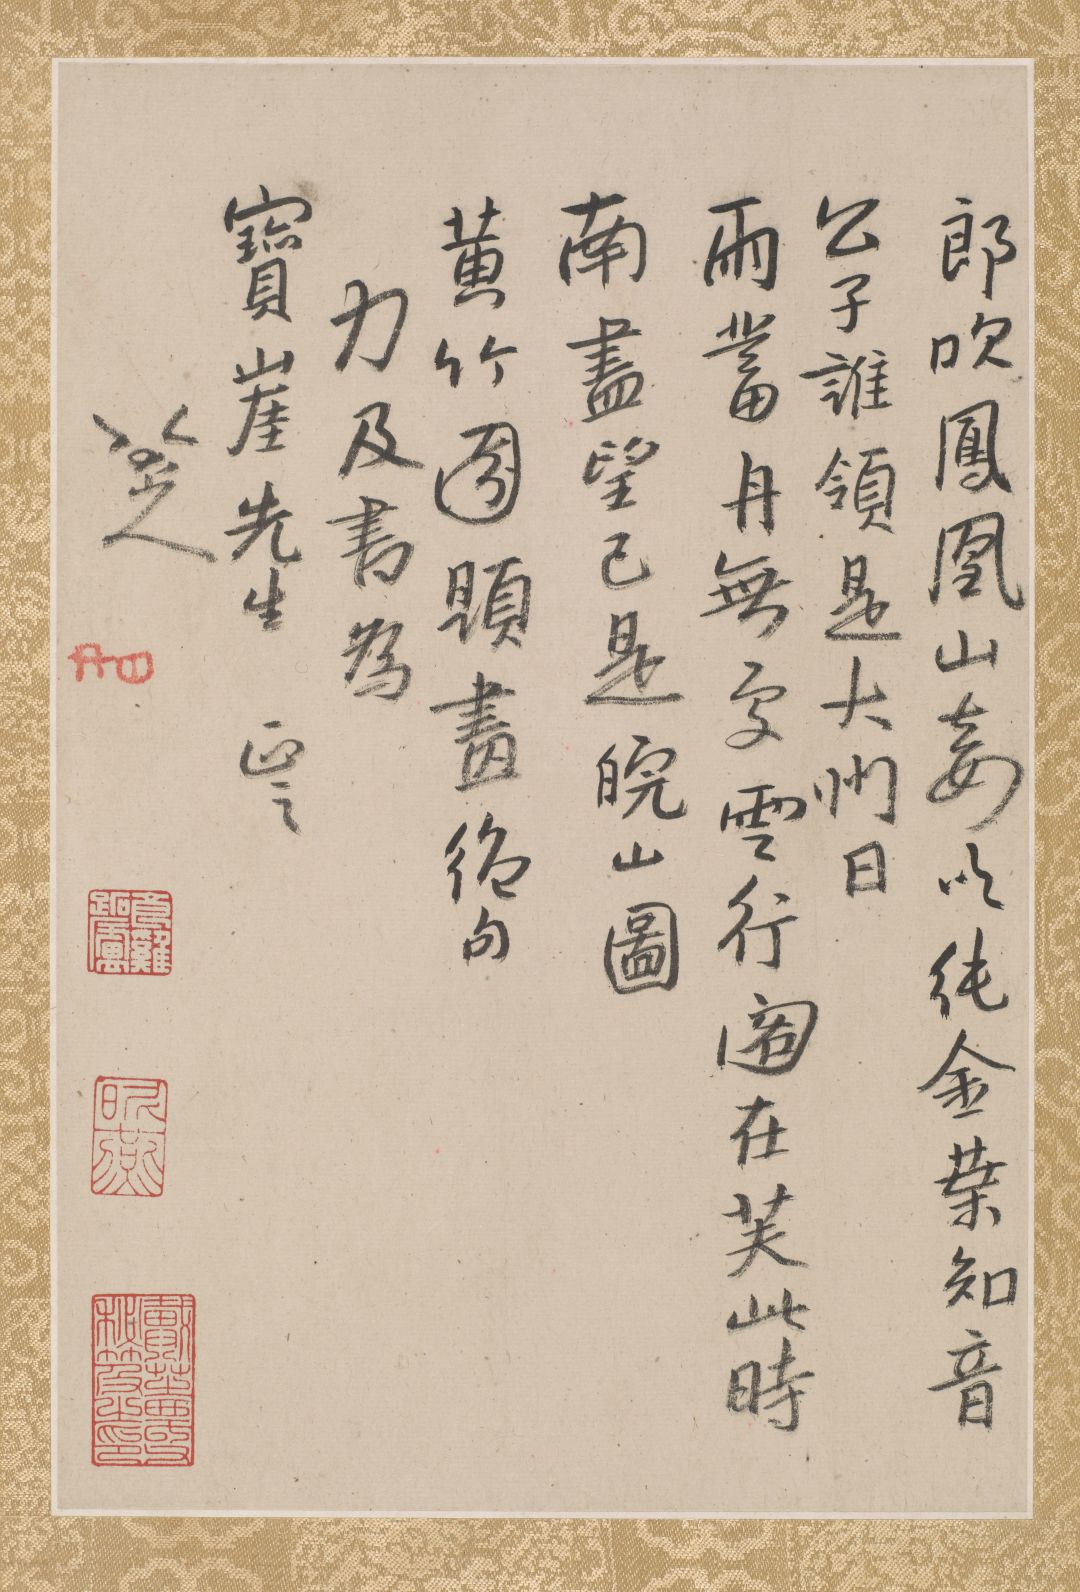 郎吹鳳凰山妾以純金葉知音
公子誰領是大州日
雨蓄舟無處雲行閣在芙此時
南盡望已是皖山圖
黄竹園題畫絶句
力及書為
寶崖先生 正之
八大山人